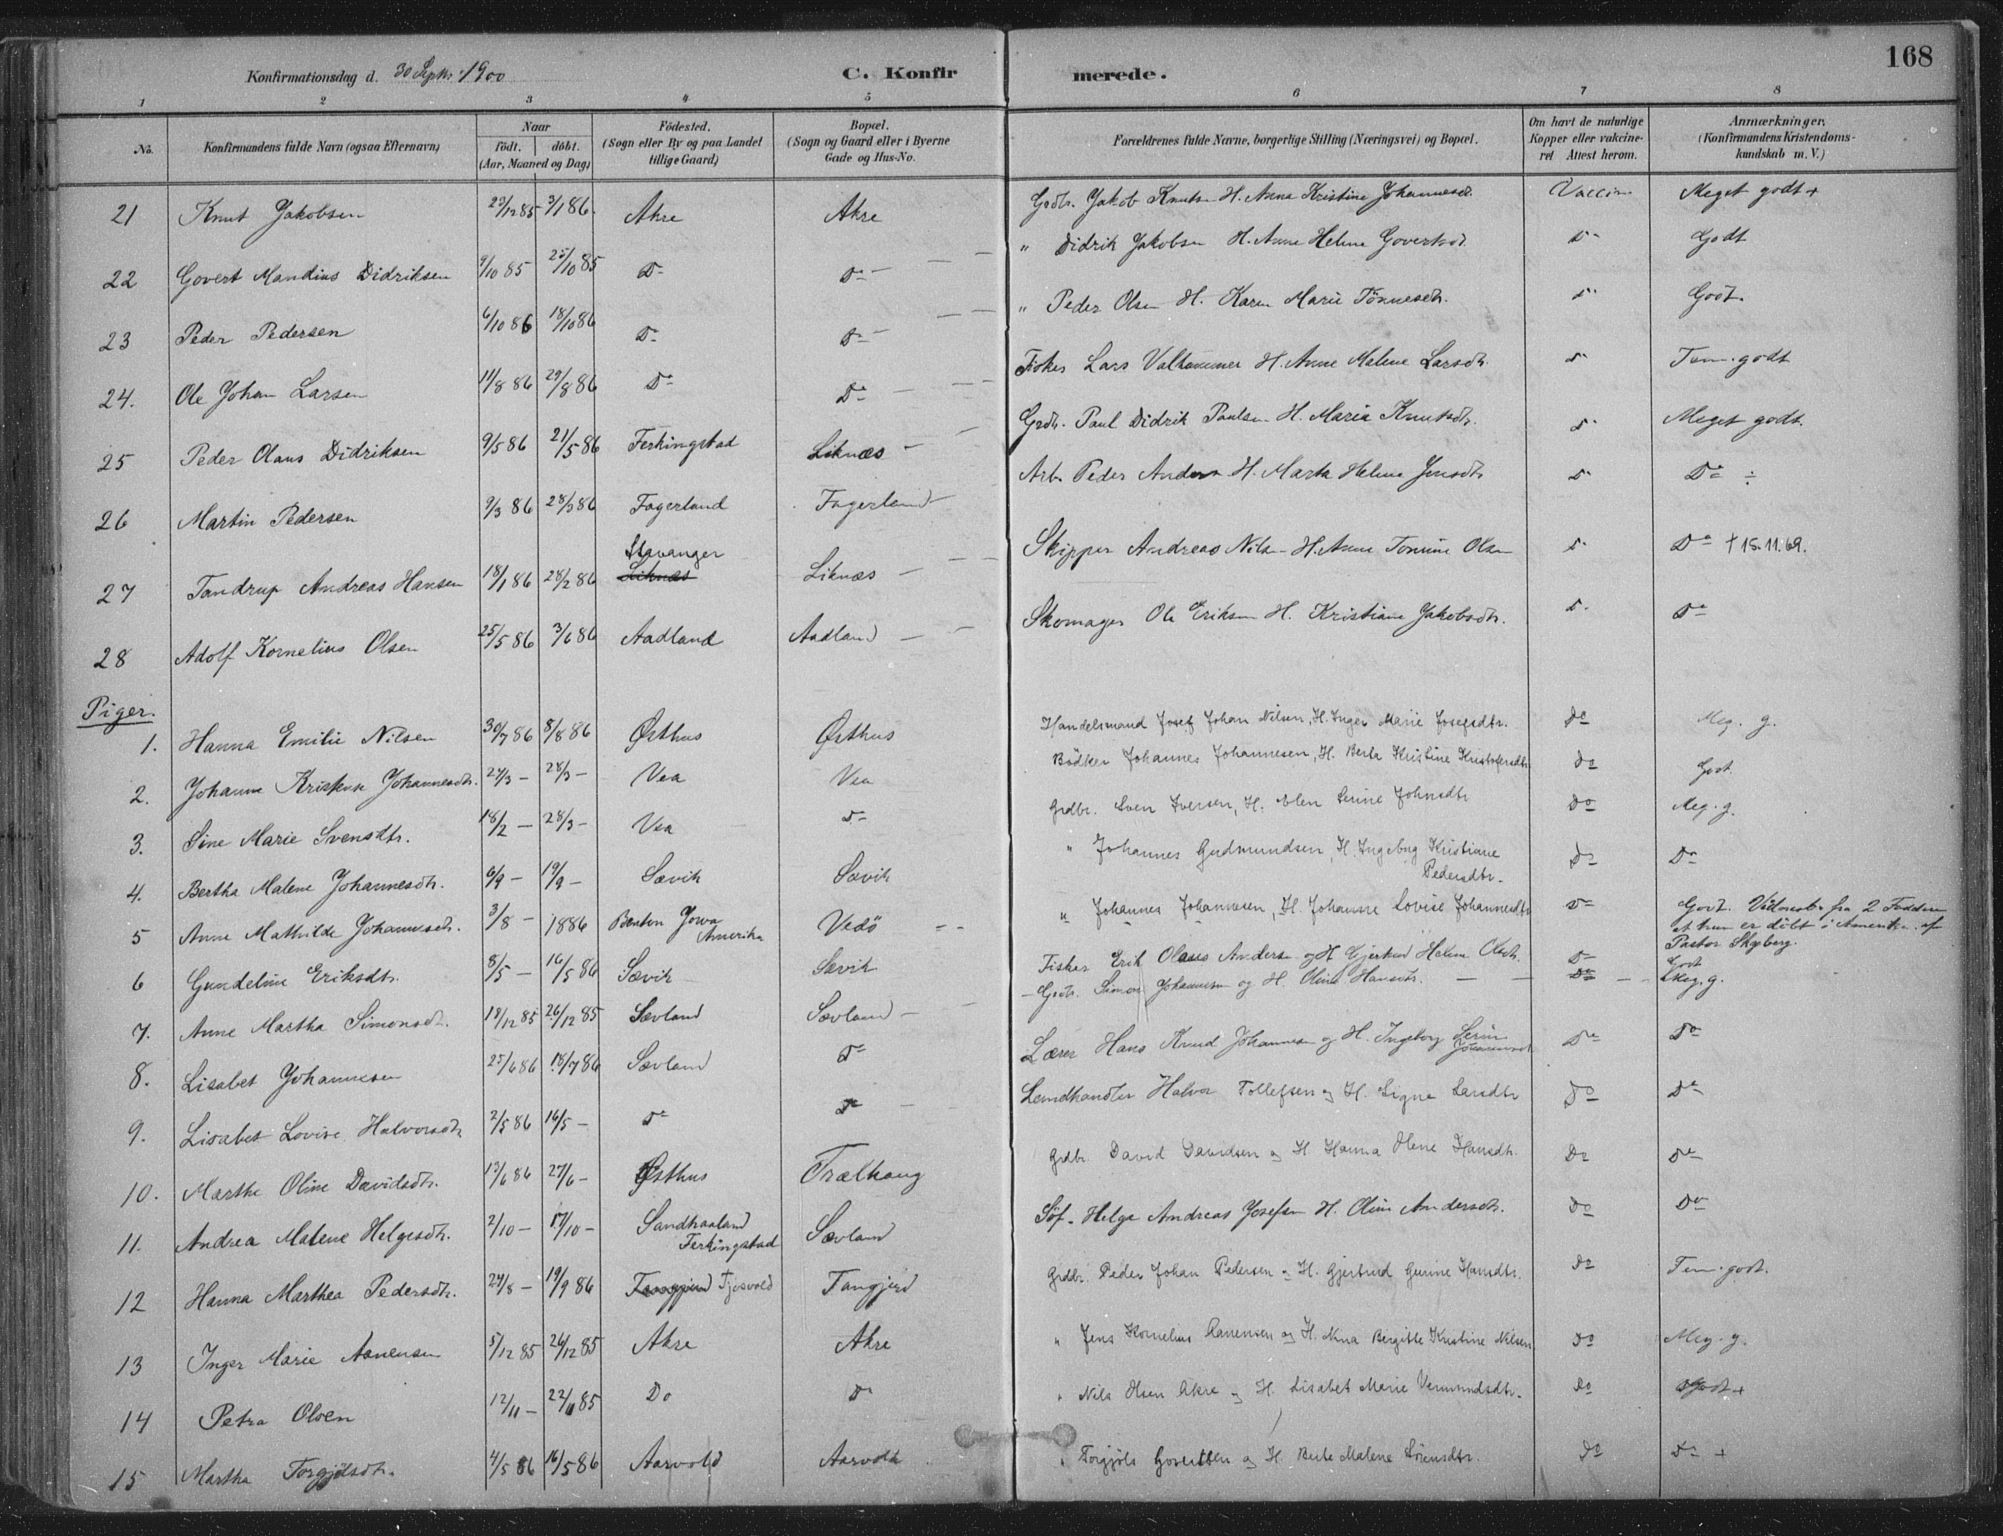 168
Konfirmationsdag d. 30 Septr. 1900 C. Konfirmerede.
1 2 3 4 5 6 7 8
No. Konfirmandens fulde Navn (ogsaa Efternavn) Naar født. døbt. (Aar, Maaned og Dag) Fødested. (Sogn eller By og paa Landet tillige Gaard) Bopæl. (Sogn og Gaard eller i Byerne Gade og Hus-No. Forældrenes fulde Navne, borgerlige Stilling (Næringsvei) og Bopæl. Om havt de naturlige Kopper eller vaccineret Attest herom. Anmærkninger, (Konfirmandens Kristendomskundskab m. V.)
21 Knut Jakobsen 23/12 85 3/1 86. Akre Akre Grdbr. Jakob Knutsen H. Anna Kristine Johannesd. Vaccin Meget godt +
22 Govert Mandius Didriksen 9/10 85 25/10 85 Do Do " Didrik Jakobsen H. Anne Helene Govertsd. Do Godt
23 Peder Pedersen 6/10 86 18/10 86 Do Do " Peder Olsen H. Karen Marie Tönnesdtr. Do Godt.
24. Ole Johan Larsen 11/8 86 29/8 86 Do Do Fisker Lars Valhammer H. Anne Malene Larsdtr. Do Tem. godt
25 Peder Olaus Didriksen 9/5 86 21/5 86 Ferkingstad Liknæs Grdbr. Paul Didrik Paulsen H. Maria Knutsdtr. Do Meget godt.
26 Martin Pedersen 9/3 86 28/3 86 Fagerland Fagerland Arb. Peder Andersen H. Marta Helene Jensdtr Do Do ÷
27 Tandrup Andreas Hansen 18/1 86 28/2 86 Stavanger Liknæs Liknæs Skipper Andreas Nilsen H. Anne Tomine Olsen Do Do † 15.11.69.
28 Adolf Kornelius Olsen 25/5 86 3/6 86 Aadland Aadland Skomager Ole Eriksen H. Kristiane Jakobsdtr. Do Do
Piger.
1. Hanna Emilie Nilsen 30/7 86 8/8 86 Østhus Østhus Handelsmand Josef Johan Nilsen, H. Inger Marie Josefsdtr. Do Meg. g.
2. Johanne Kristine Johannesdtr. 24/3 – 28/3 – Vea Vea Bödker Johannes Johannesen, H. Berta Kristine Kristofersdtr Do Godt
3. Sine Marie Svensdtr. 18/2 – 28/3 – Vea Do Grdbr. Sven Iversen, H. Elen Serine Johnsdtr Do Meg. g.
4. Bertha Malene Johannesdtr. 6/9 – 19/9 – Sævik Sævik " Johannes Gudmundsen, H. Ingebrg Kristiane Pedersdtr. Do Do
5 Anne Mathilde Johannesdtr. 3/8 – 1886 Benton Jowa Amerika Vedö " Johannes Johannesen, H. Johanne Lovise Johannesdtr Do Godt. Vidnesb. fra 2 Faddere at hun er döbt i Amerika af Pastor Skyberg.
6 Gundeline Eriksdtr. 8/5 – 16/5 86 Sævik Sævik Fisker Erik Olaus Andersen og H. Gjertrud Helene Olsdtr. Do Godt
7. Anne Martha Simonsdtr. 18/12 85 26/12 85 Sævland Sævland Grdbr. Simon Johannesen og H. Oline Hansdtr. Do Meg. g.
8. Lisabet Johannesen 25/6 86 18/7 86 Sævland Do Lærer Hans Knud Johannesen og H. Ingeborg Serine Johannesdtr Do Do
9. Lisabet Lovise Halvorsdtr 2/5 86 16/5 – Do Do Landhandler Halvor Tollefsen og H. Signe Larsdtr Do Do
10. Marthe Oline Davidsdtr. 13/6 86 27/6 – Østhus Trælhaug Grdbr. David Davidsen og H Hanna Olene Hansdtr. Do Do
11. Andrea Malene Helgesdtr. 2/10 – 17/10 – Sandhaaland Ferkingstad Sævland Söf. Helge Andreas Josefsen H. Oline Andersdtr. Do Do
12 Hanna Marthea Pedersdtr. 24/8 – 19/9 86 Tangjerd Tjøsvold Tangjerd Grdbr. Peder Johan Pedersen og H. Gjertrud Gurine Hansdtr. Do Tem. godt.
13 Inger Marie Aanensen 5/12 85 26/12 85 Akre Akre " Jens Kornelius Aanensen og H. Nina Birgitte Kristine Nilsen Do Meg. g.
14 Petra Olsen 12/11 – 22/11 85 Do Do " Nils Olsen Akre og H. Lisabet Marie Vermundsdtr. Do Godt +
15 Martha Torgjölsdtr. 4/5 86 16/5 86 Aarvold Aarvold " Torgjöls Govertsen og H. Berte Malene Sörensdtr. Do Do +